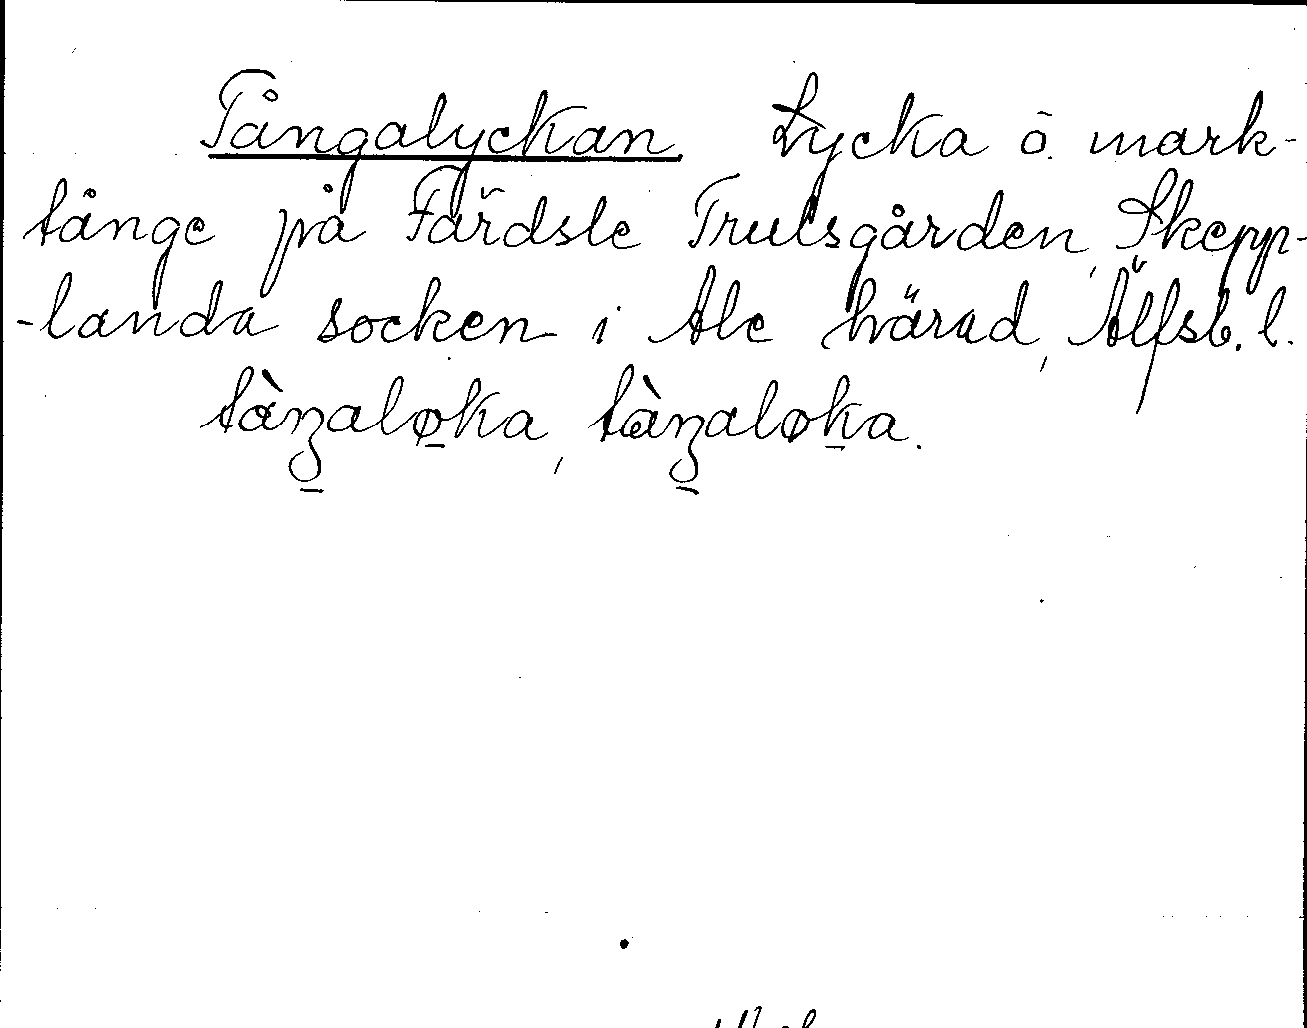 Tångalyckan Lycka å mark-
tånge på Färdsle Trulsgården, Skepp-
-landa socken i Ale härad, Älfsb. l.
tàŋaløka, tàŋaløka.